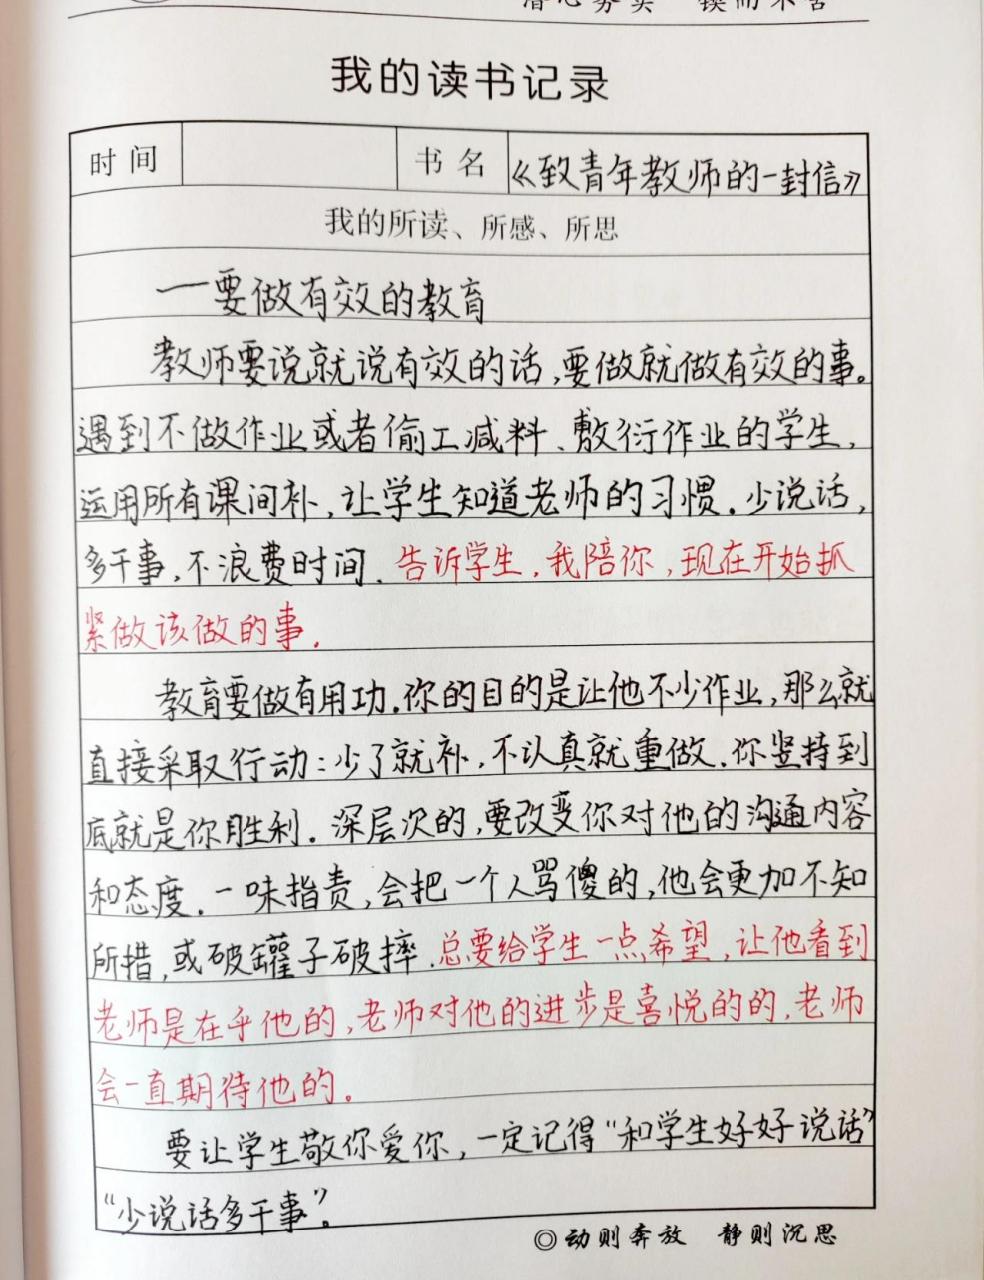 潜心务实 锲而不舍
我的读书记录
时间 书名 《致青年教师的一封信》
我的所读、所感、所思
——要做有效的教育
教师要说就说有效的话,要做就做有效的事。
遇到不做作业或者偷工减料、敷衍作业的学生,
运用所有课间补,让学生知道老师的习惯。少说话,
多干事,不浪费时间。告诉学生,我陪你,现在开始抓
紧做该做的事。
教育要做有用功。你的目的是让他不少作业,那么就
直接采取行动:少了就补,不认真就重做。你坚持到
底就是你胜利。深层次的,要改变你对他的沟通内容
和态度。一味指责,会把一个人骂傻的,他会更加不知
所措,或破罐子破摔。总要给学生一点希望,让他看到
老师是在乎他的,老师对他的进步是喜悦的的,老师
会一直期待他的。
要让学生敬你爱你,一定记得“和学生好好说话”
“少说话多干事”。
◎动则奔放 静则沉思